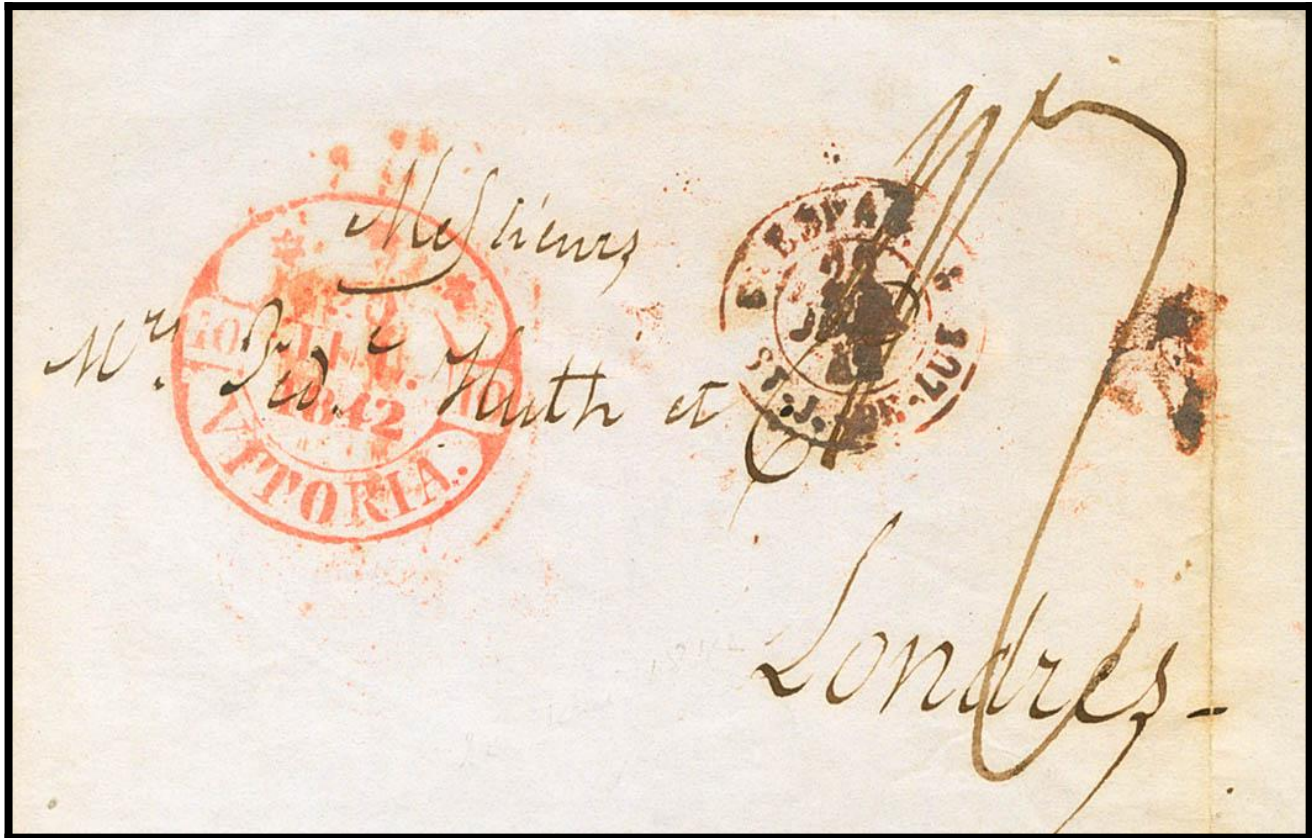 Messieurs
Mrs. Fred.c Huth et Co
Londres-
10
10
1842
VITORIA.
ESPAG.
ST-J.-DE-LUZ